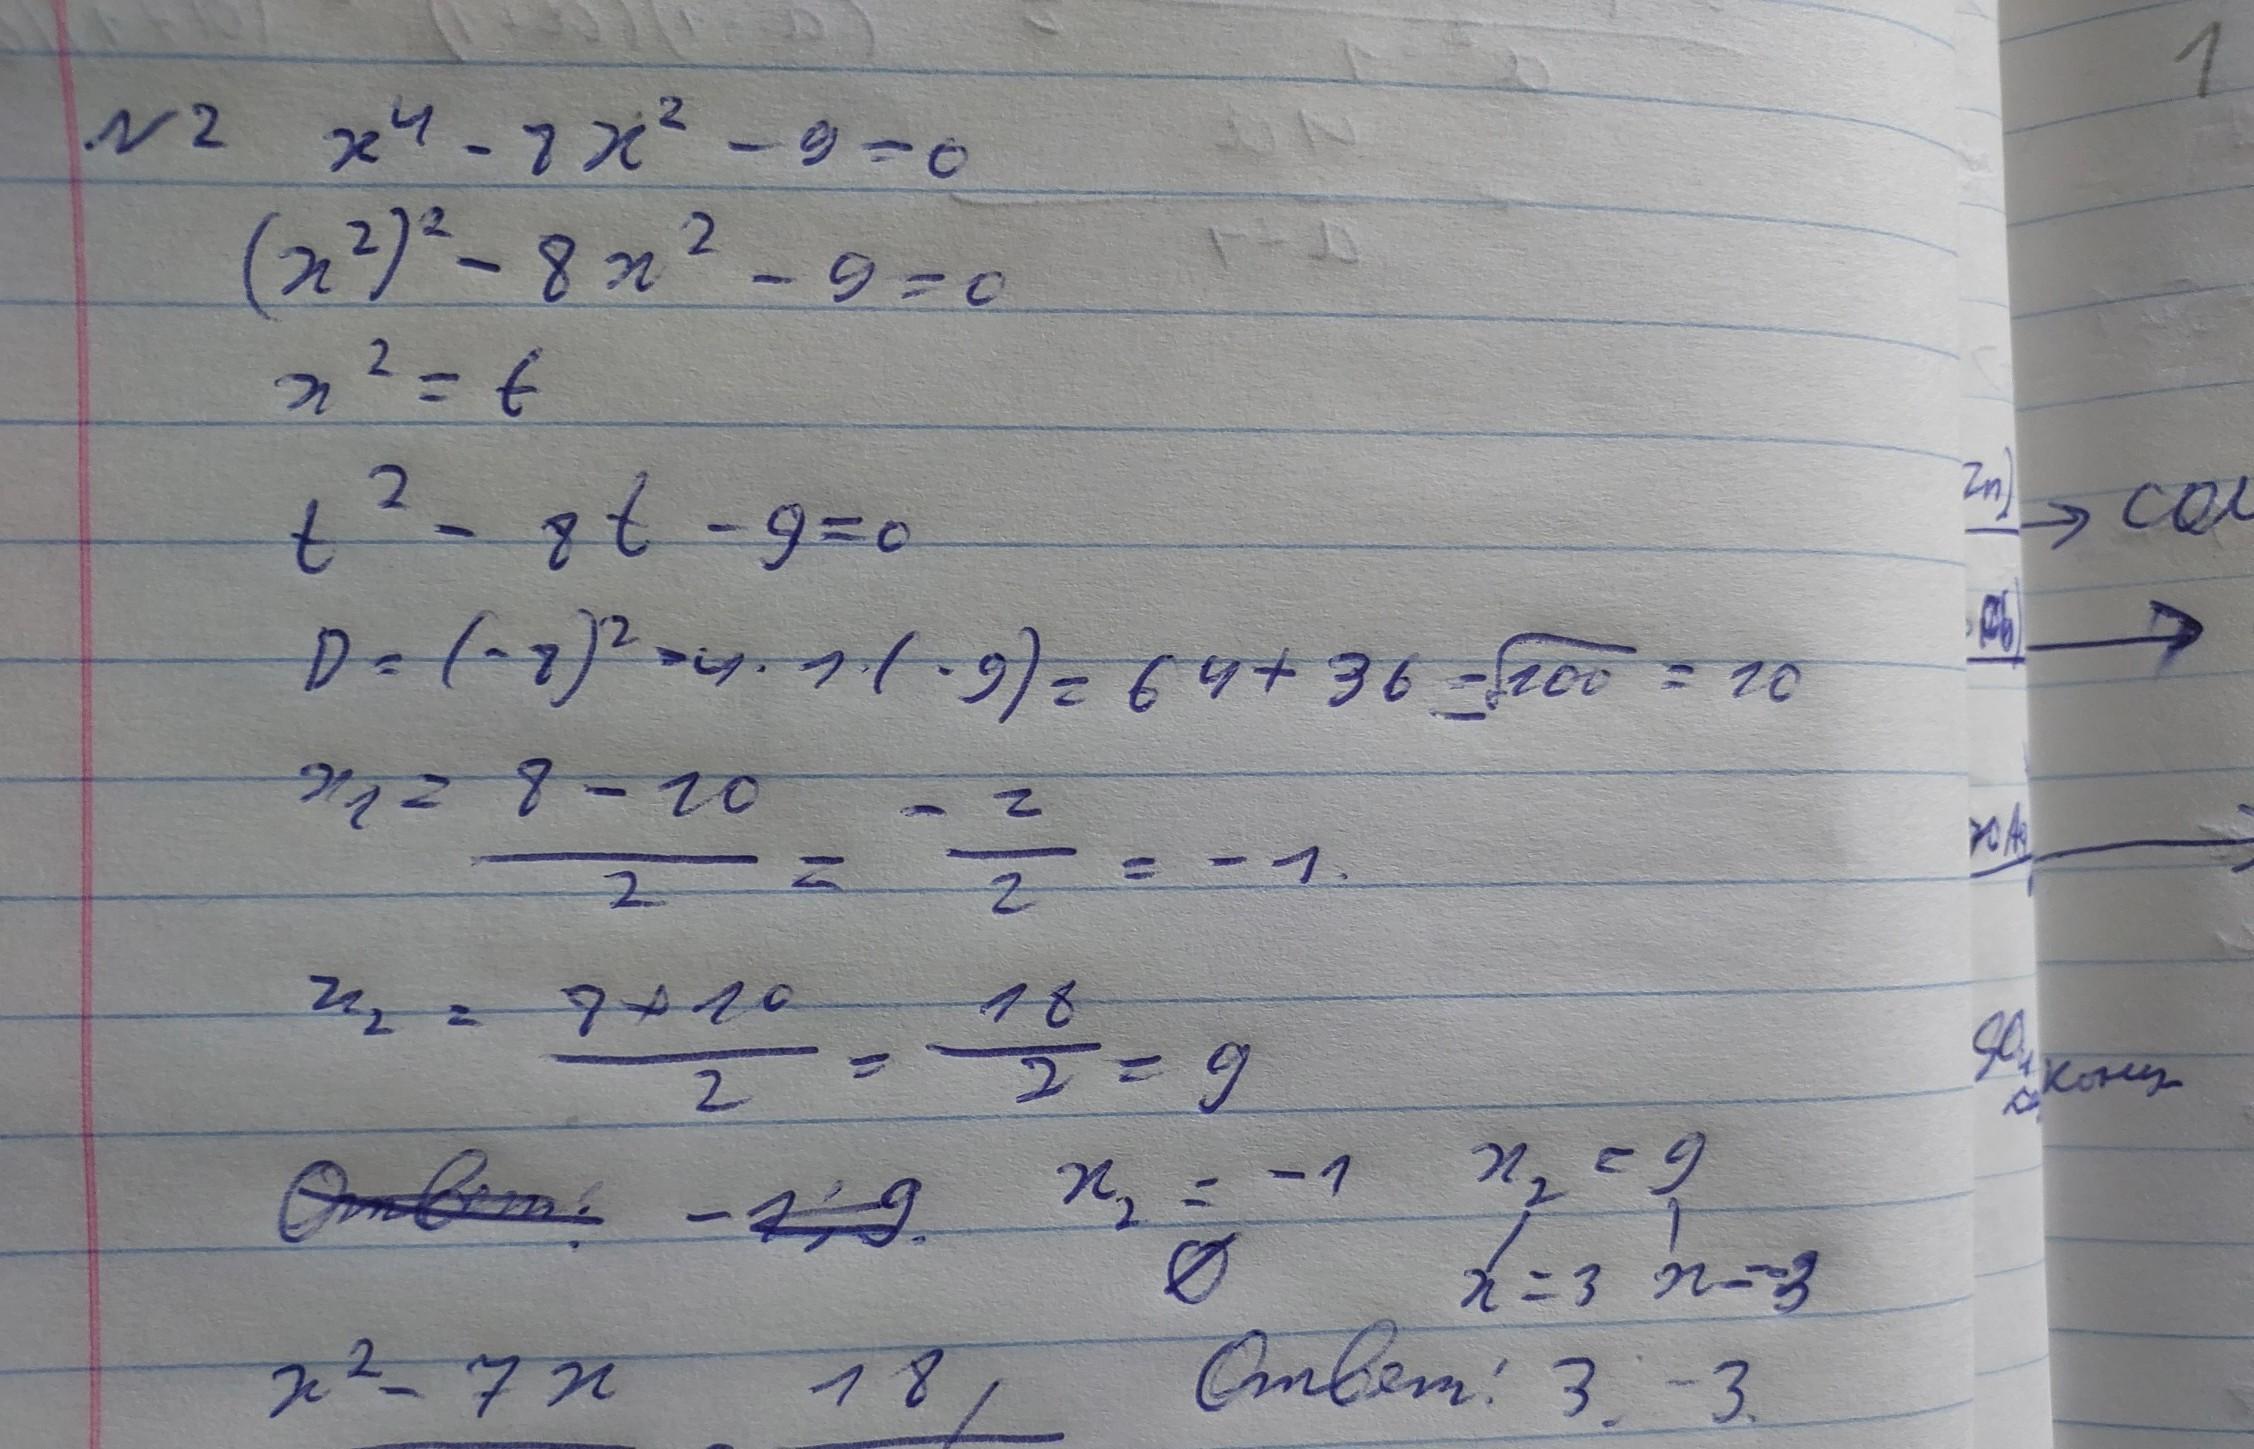 N2 x⁴ - 8x² - 9 = 0
(x²)² - 8x² - 9 = 0
x² = t
t² - 8t - 9 = 0
D = (-8)² - 4 · 1 · (-9) = 64 + 36 = √100 = 10
x₁ = (8 - 10)/2 = -2/2 = -1.
x₂ = (8 + 10)/2 = 18/2 = 9
Ответ: -1; 9. x₂ = -1 x₂ = 9
∅ x = 3 x = -3
x² - 7x 18 Ответ: 3; -3.
1
Zn) → сол
Pb) →
конц